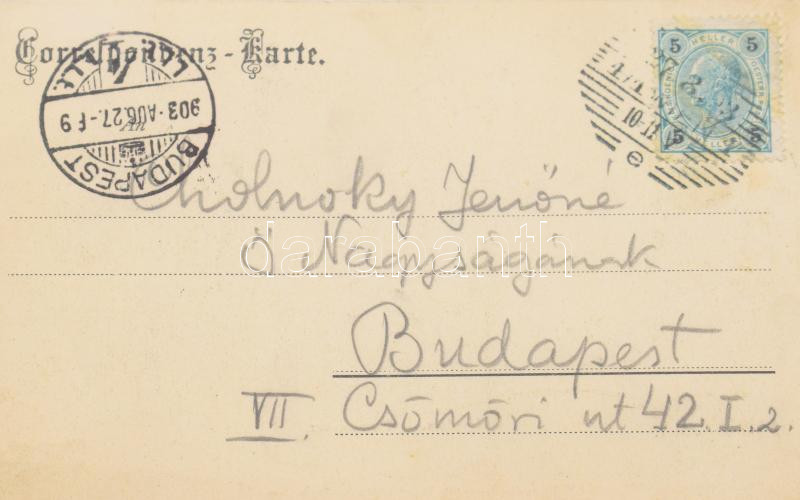 Correspondenz-Karte.
BUDAPEST
903·AUG.27.-F9
5 HELLER 5
5 HELLER 5
10-11
e
Cholnoky Jenőné
Ő Nagyságának
Budapest
VII. Csömöri út 42.I.2.
darabanth